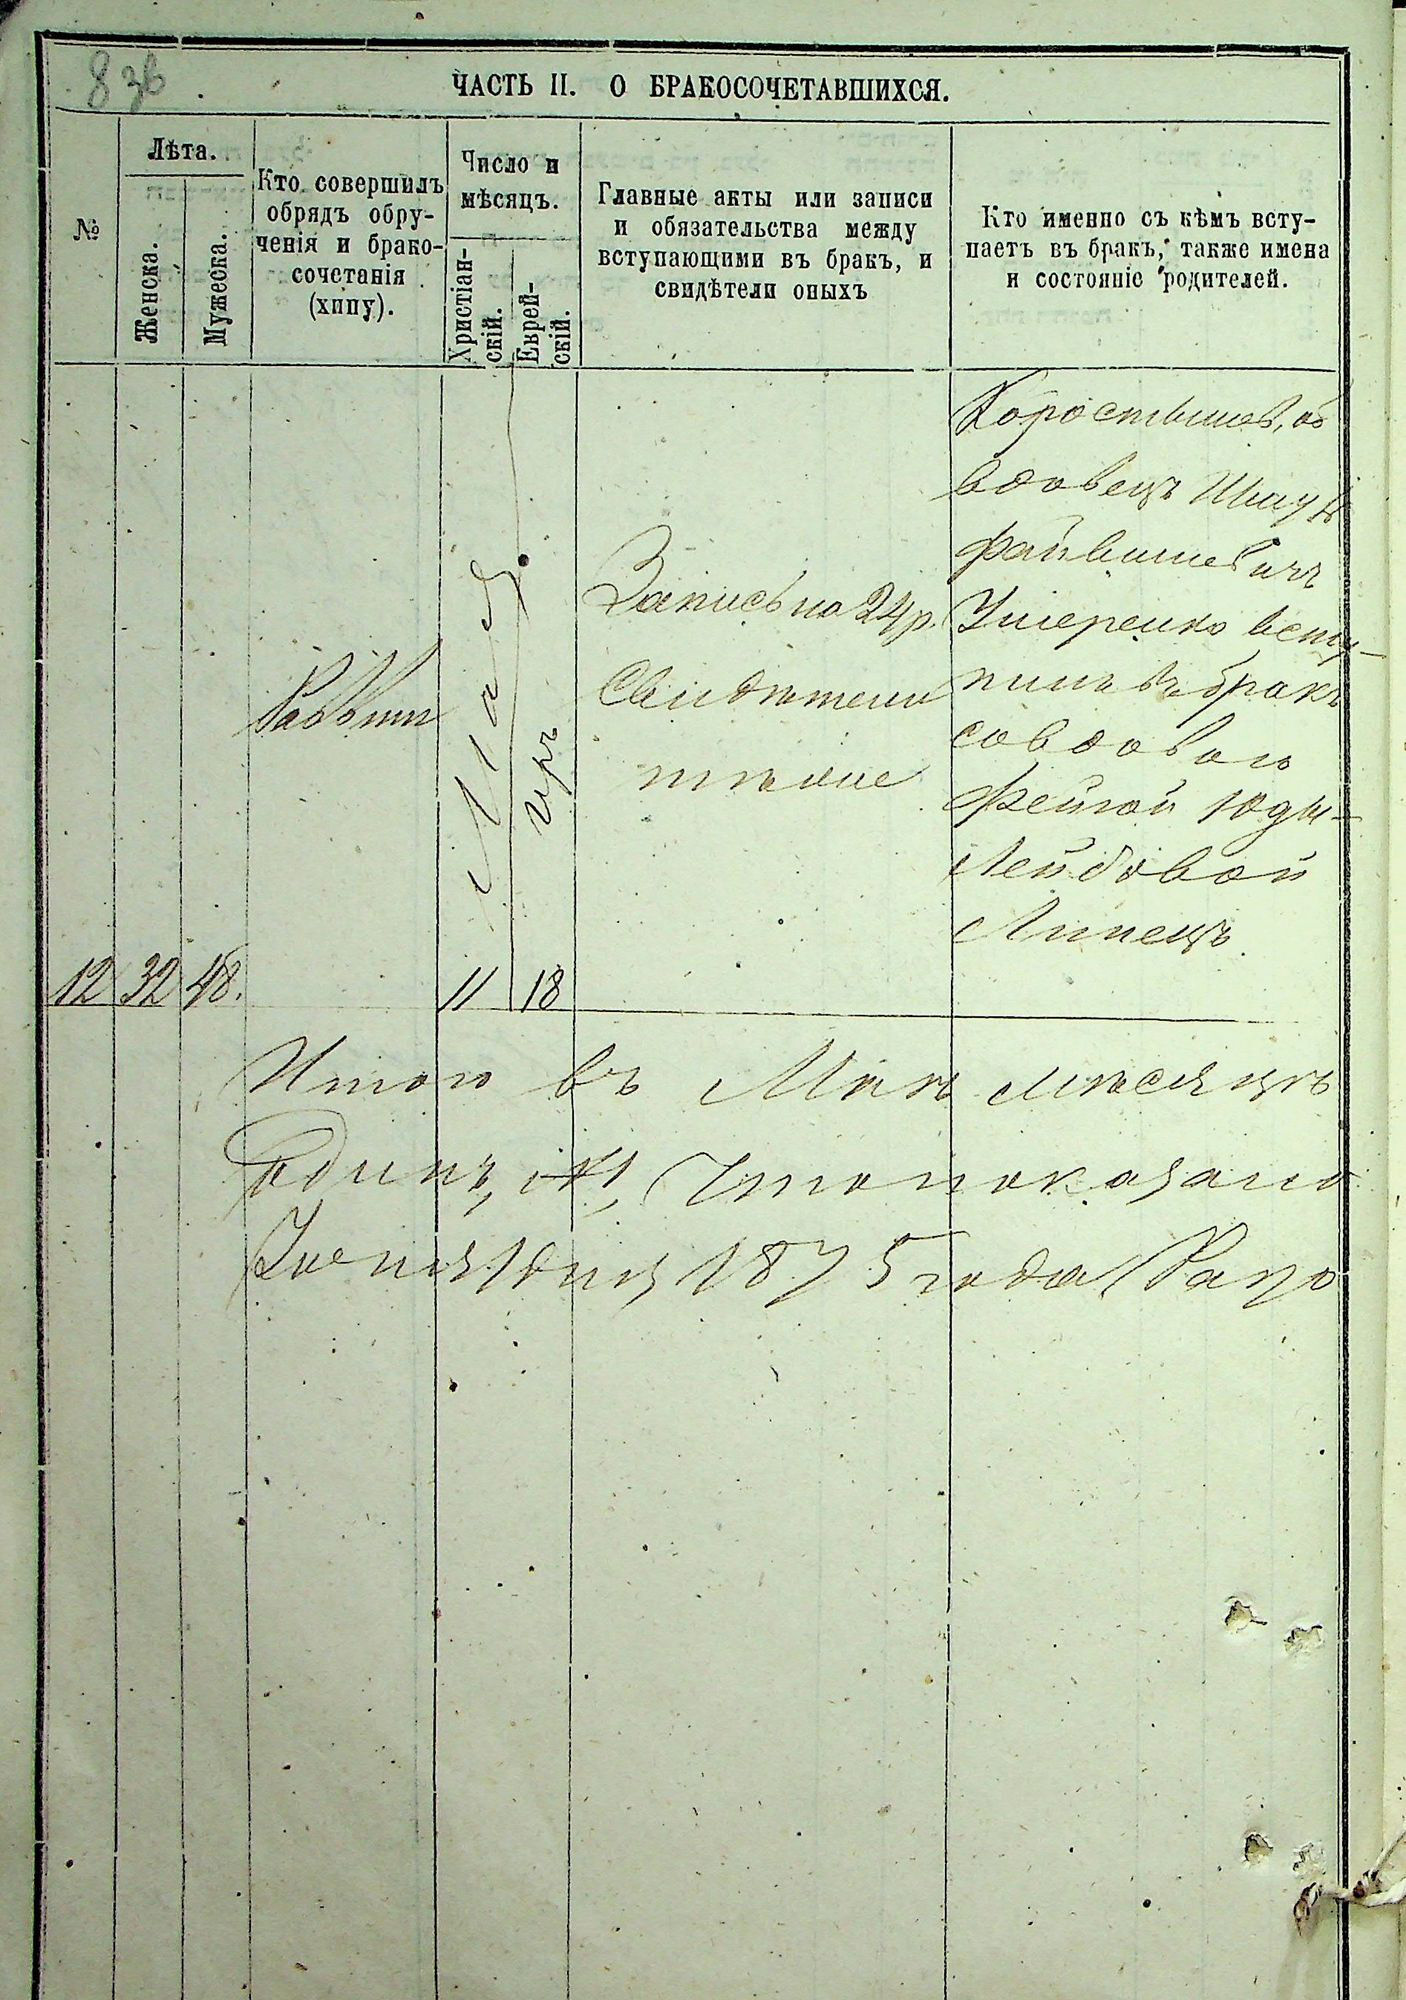 8 зв
ЧАСТЬ II. О БРАКОСОЧЕТАВШИХСЯ.
№
Лѣта.
Женска.
Мужеска.
Кто совершилъ
обрядъ обру-
ченія и брако-
сочетанія
(хипу).
Число и
мѣсяцъ.
Христіан-
скій.
Еврей-
скій.
Главные акты или записи
и обязательства между
вступающими въ бракъ, и
свидѣтели оныхъ
Кто именно съ кѣмъ всту-
паетъ въ бракъ, также имена
и состояніе родителей.
12
32
48.
Раввин
Мая
11
иръ
18
Запись на 24 р.
Свидѣтели
тѣ же
Коростышев. об
вдовецъ
Файвишевичъ
Ушеренко всту-
пилъ въ бракъ
со вдовою
Фейгой Юды-
Лейбовой
Липецъ.
Итого въ Маѣ мѣсяцѣ
Одинъ, №1, Что показано
Іюня 1 дня 1875 года